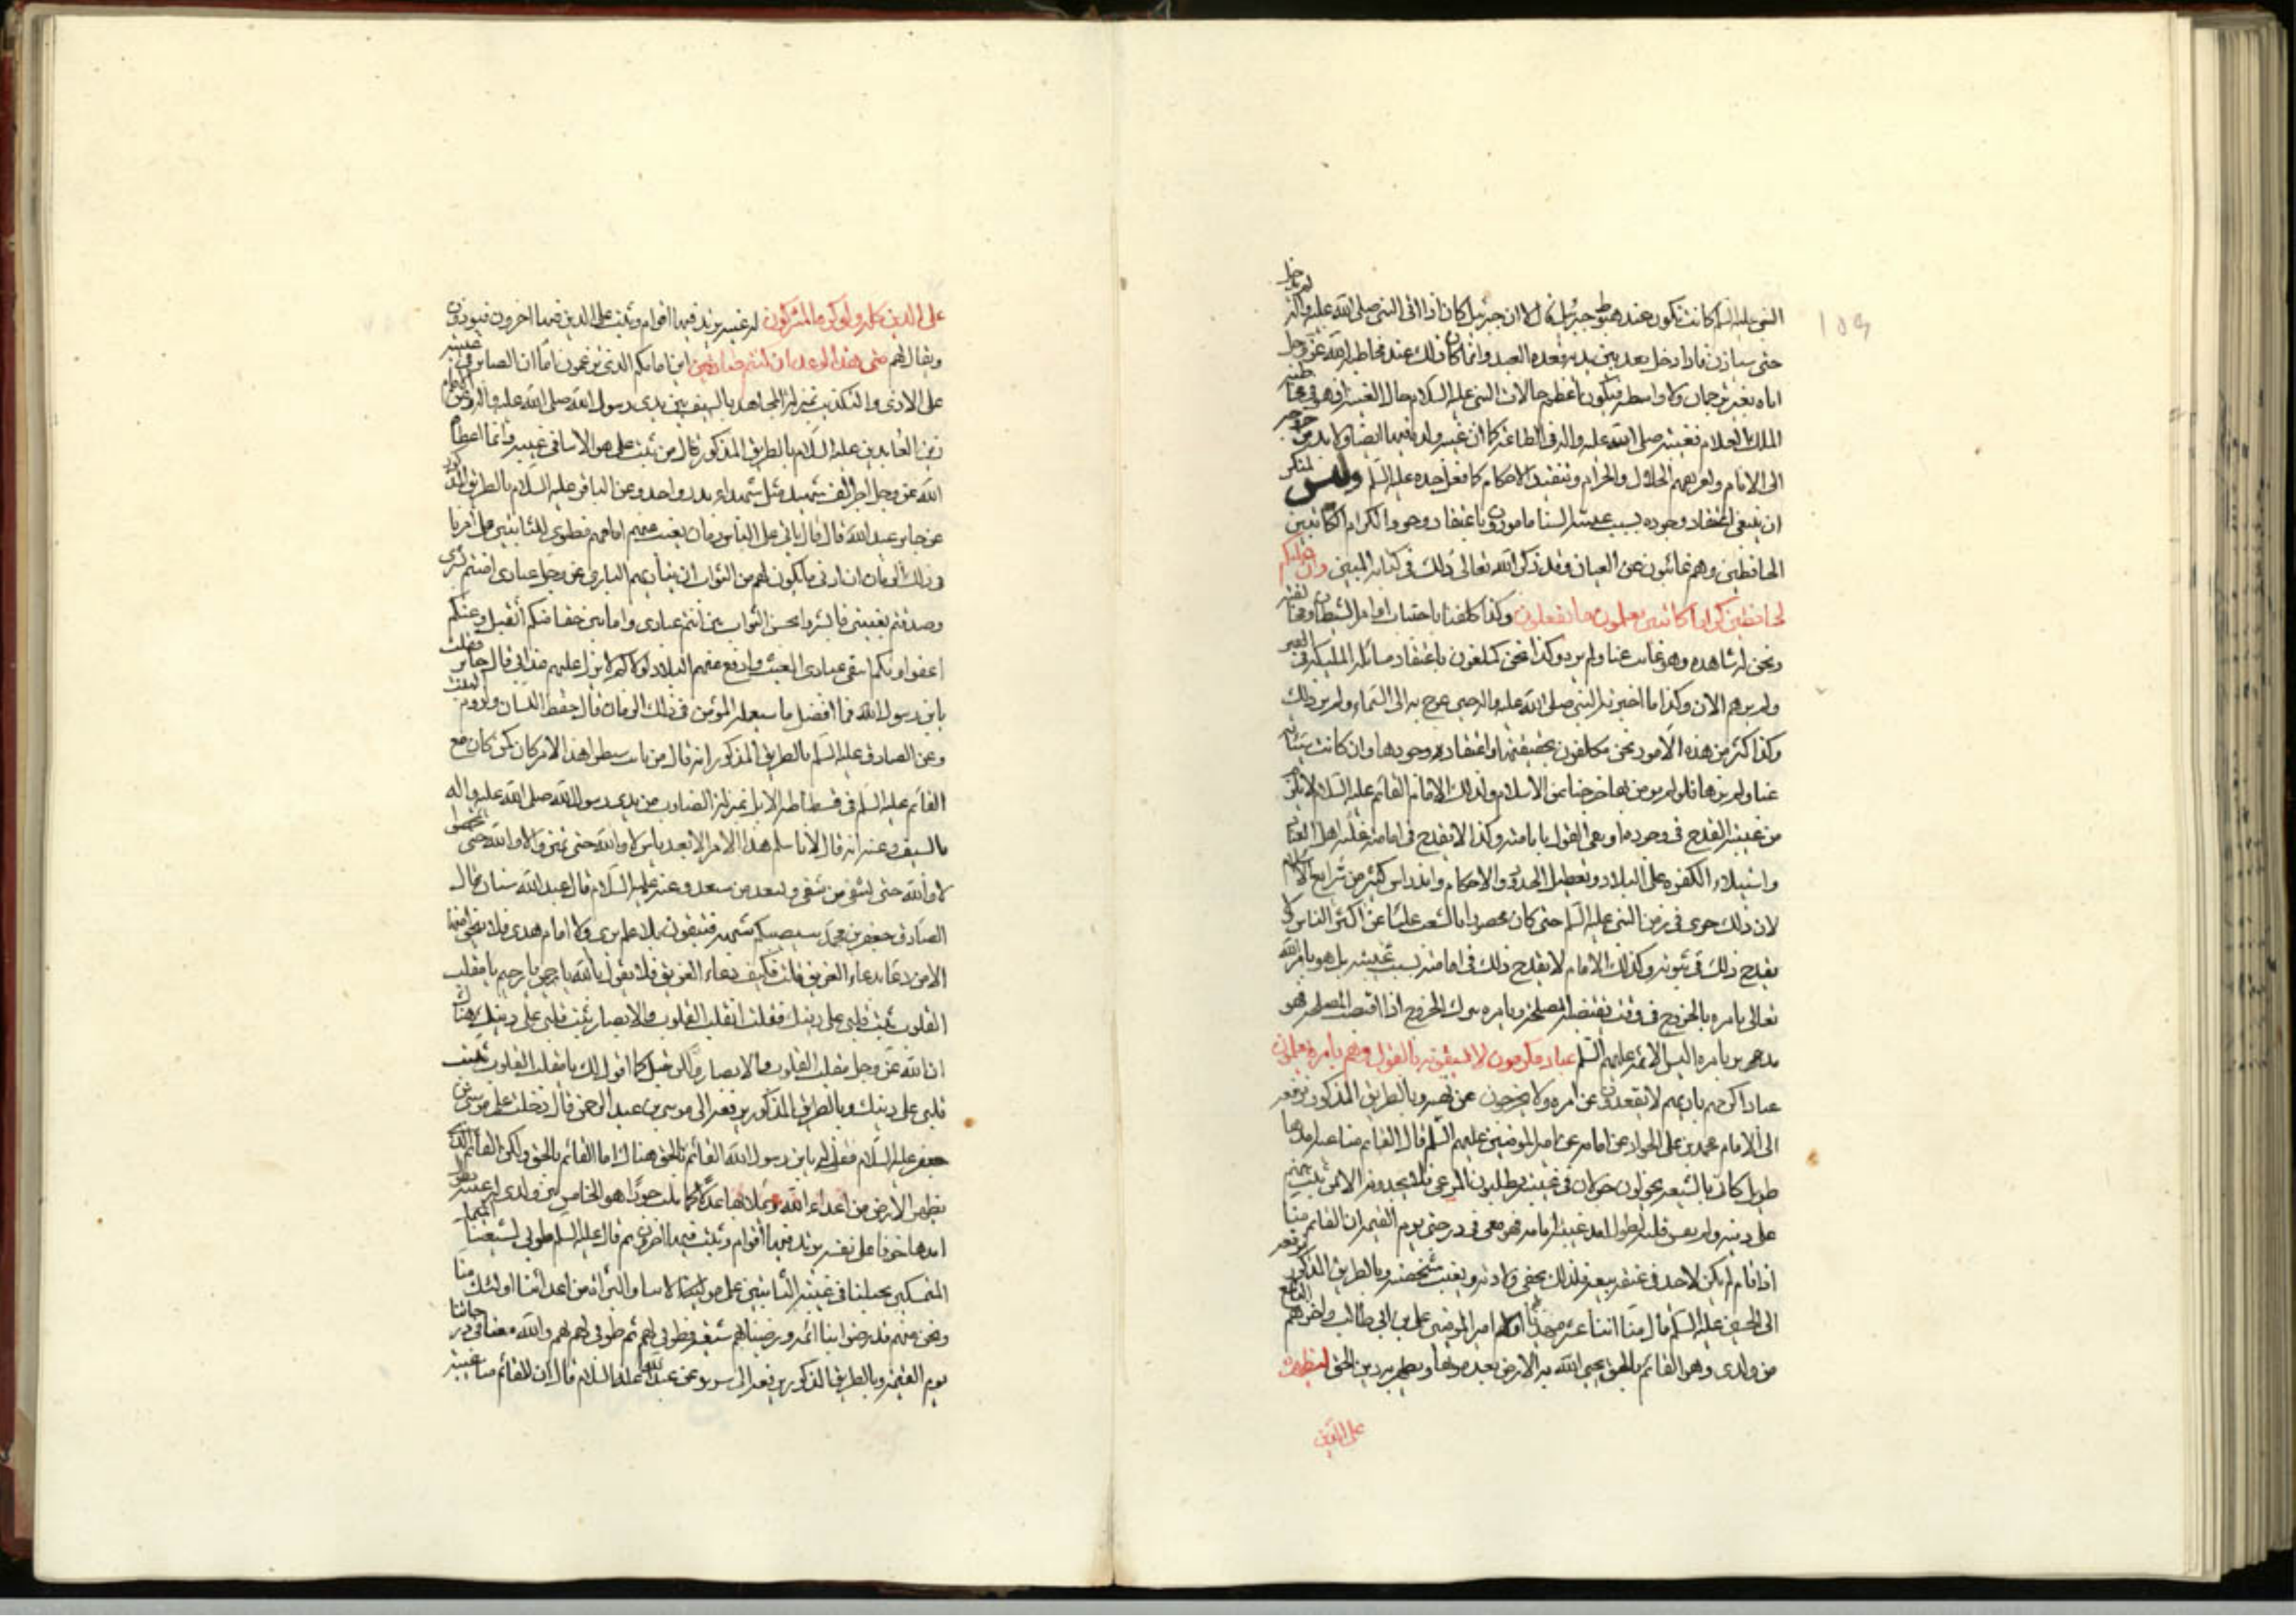 ١٥٩
النبي عليه السلام كانت تكون عند هبوط جبرئيل قال لا ان جبرئيل كان اذا اتى النبي صلى الله عليه واله لم يدخل
حتى يستاذن فاذا دخل بعد بين يديه قعدة العبد وانما كان ذلك عند مخاطبة الله عز وجل
اياه بغير ترجمان ولا واسطة فيكون اعظم حالات النبي عليه السلام حال الغيبة
الملك العلام فغيبته صلى الله عليه واله في الطاعة كما ان غيبة ولده فيها ايضا ولا بد من
الى الامام وتعريفهم الحلال والحرام وتنفيذ الاحكام كما فعل جده عليه السلم وليس لمنكر
ان ينفي اعتقاد وجوده بسبب غيبته السنا مامورون باعتقاد وجود الكرام الكاتبين
الحافظين وهم غائبون عن العيان وقد ذكر الله تعالى ذلك في كتابه المبين وان عليكم
لحافظين كراما كاتبين يعلمون ما تفعلون وكذا كلفنا باجتناب اوامر الشيطان
ونحن لم نشاهده وهو غائب عنا ولم نره وكذا نحن مكلفون باعتقاد مسائلة الملكين في القبر
ولم نرهم الان وكذا ما اخبر به النبي صلى الله عليه واله حين عرج به الى السماء ولم نر ذلك
وكذا كثير من هذه الامور نحن مكلفون بحقيقتها واعتقاد وجودها وان كانت
عنا ولم نرها فلو لم نومن بها خرجنا من الاسلام وكذلك الامام القائم عليه السلام لا يلزم
من غيبته القدح في وجوده ونفي القول بامامته وكذا لا يقدح في امامته غلبة اهل
واستيلاء الكفرة على البلاد وتعطيل الحدود والاحكام واندراس كثير من شرايع الاسلام
لان ذلك جرى في زمن النبي عليه السلم حتى كان محصورا بالشعب غائبا عن اكثر الناس ولم
يقدح ذلك في نبوته وكذلك الامام لا يقدح ذلك في امامته بسبب غيبته بل هو بامر الله
تعالى يامره بالخروج في وقت تقتضيه المصلحة ويامره بترك الخروج اذا اقتضت المصلحة فهو
مدبر بامره اليس الائمة عليهم السلم عباد مكرمون لا يسبقونه بالقول وهم بامره يعملون
عبادا اكرمهم باريهم لا يقعدون عن امره ولا يخرجون عن نهيه وبالطريق المذكور يرفعه
الى الامام محمد بن علي الجواد عن ابائه عن امير المومنين عليهم السلم قال القائم منا غيبة امدها
طويل كاني بالشيعة يجولون جولان في غيبته يطلبون المرعى فلا يجدونه الا من ثبت منهم
على دينه ولم يقس قلبه لطول امد غيبة امامه فهو معي في درجتي يوم القيمة ان القائم منا
اذا قام لم يكن لاحد في عنقه بيعة فلذلك يخفى ولادته ويغيب شخصه وبالطريق المذكور يرفعه
الى الحسين عليه السلم قال منا اثنا عشر مهديا اولهم امير المومنين علي بن ابي طالب واخرهم التاسع
من ولدي وهو القائم بالحق يحيي الله به الارض بعد موتها ويظهر به دين الحق ليظهره
على الدين
على الدين كله ولو كره المشركون له غيبة يرتد فيها اقوام ويثبت على الدين فيها اخرون فيوذون
ويقال لهم متى هذا الوعد ان كنتم صادقين اين امامكم الذي تزعمون اما ان الصابر في غيبته
على الاذى والتكذيب بمنزلة المجاهد بالسيف بين يدي رسول الله صلى الله عليه واله وعن الامام
زين العابدين عليه السلام بالطريق المذكور قال من ثبت على موالاتنا في غيبته قائمنا اعطاه
الله عز وجل اجر الف شهيد مثل شهداء بدر واحد وعن الباقر عليه السلام بالطريق المذكور
عن جابر عبد الله قال قال ياتي على الناس زمان يغيب عنهم امامهم فطوبى للثابتين على امرنا
في ذلك الزمان ان ادنى ما يكون لهم من الثواب ان يناديهم الباري عز وجل عبادي امنتم بسري
وصدقتم بغيبتي فابشروا بحسن الثواب مني انتم عبادي وامائي حقا منكم اتقبل وعنكم
اعفو وبكم اسقي عبادي الغيث وادفع عنهم البلاء ولولاكم لانزل عليهم عذابي قال جابر فقلت
يا بن رسول الله فما افضل ما يستعمله المؤمن في ذلك الزمان قال حفظ اللسان ولزوم البيت
وعن الصادق عليه السلم بالطريق المذكور انه قال من مات منتظرا لهذا الامر كان كمن كان مع
القائم عليه السلم في فسطاطه لا بل بمنزلة الضارب بين يدي رسول الله صلى الله عليه واله
بالسيف وعنه انه قال لاناس هذا الامر الا بعد ياس لا والله حتى تميزوا لا والله حتى تمحصوا
لا والله حتى يشقى من شقي ويسعد من سعد وعنه عليه السلام قال عبد الله سنان قال
الصادق جعفر بن محمد سيصيبكم شبهة فتبقون بلا علم يرى ولا امام هدى فلا ينجو منها
الا من دعا بدعاء الغريق قلت فكيف دعاء الغريق قال يقول يا الله يا رحمن يا رحيم يا مقلب
القلوب ثبت قلبي على دينك فقلت يا مقلب القلوب والابصار ثبت قلبي على دينك فقال
ان الله عز وجل مقلب القلوب والابصار ولكن قل كما اقول لك يا مقلب القلوب ثبت
قلبي على دينك وبالطريق المذكور يرفعه الى يونس بن عبد الرحمن قال دخلت على موسى بن
جعفر عليه السلام فقلت له يا بن رسول الله القائم بالحق هذا انا القائم بالحق ولكن القائم الذي
يطهر الارض من اعداء الله ويملاها عدلا كما ملئت جورا هو الخامس من ولدي له غيبة يطول
امدها خوفا على نفسه يرتد فيها اقوام ويثبت فيها اخرون ثم قال عليه السلم طوبى لشيعتنا
المتمسكين بحبلنا في غيبة الثابتين على موالاتنا والبراءة من اعدائنا اولئك منا
ونحن منهم قد رضوا بنا ائمة ورضينا بهم شيعة فطوبى لهم ثم طوبى لهم هم والله معنا في درجاتنا
يوم القيمة وبالطريق المذكور يرفعه الى سدير عن ابي عبد الله عليه السلام قال ان للقائم منا غيبة